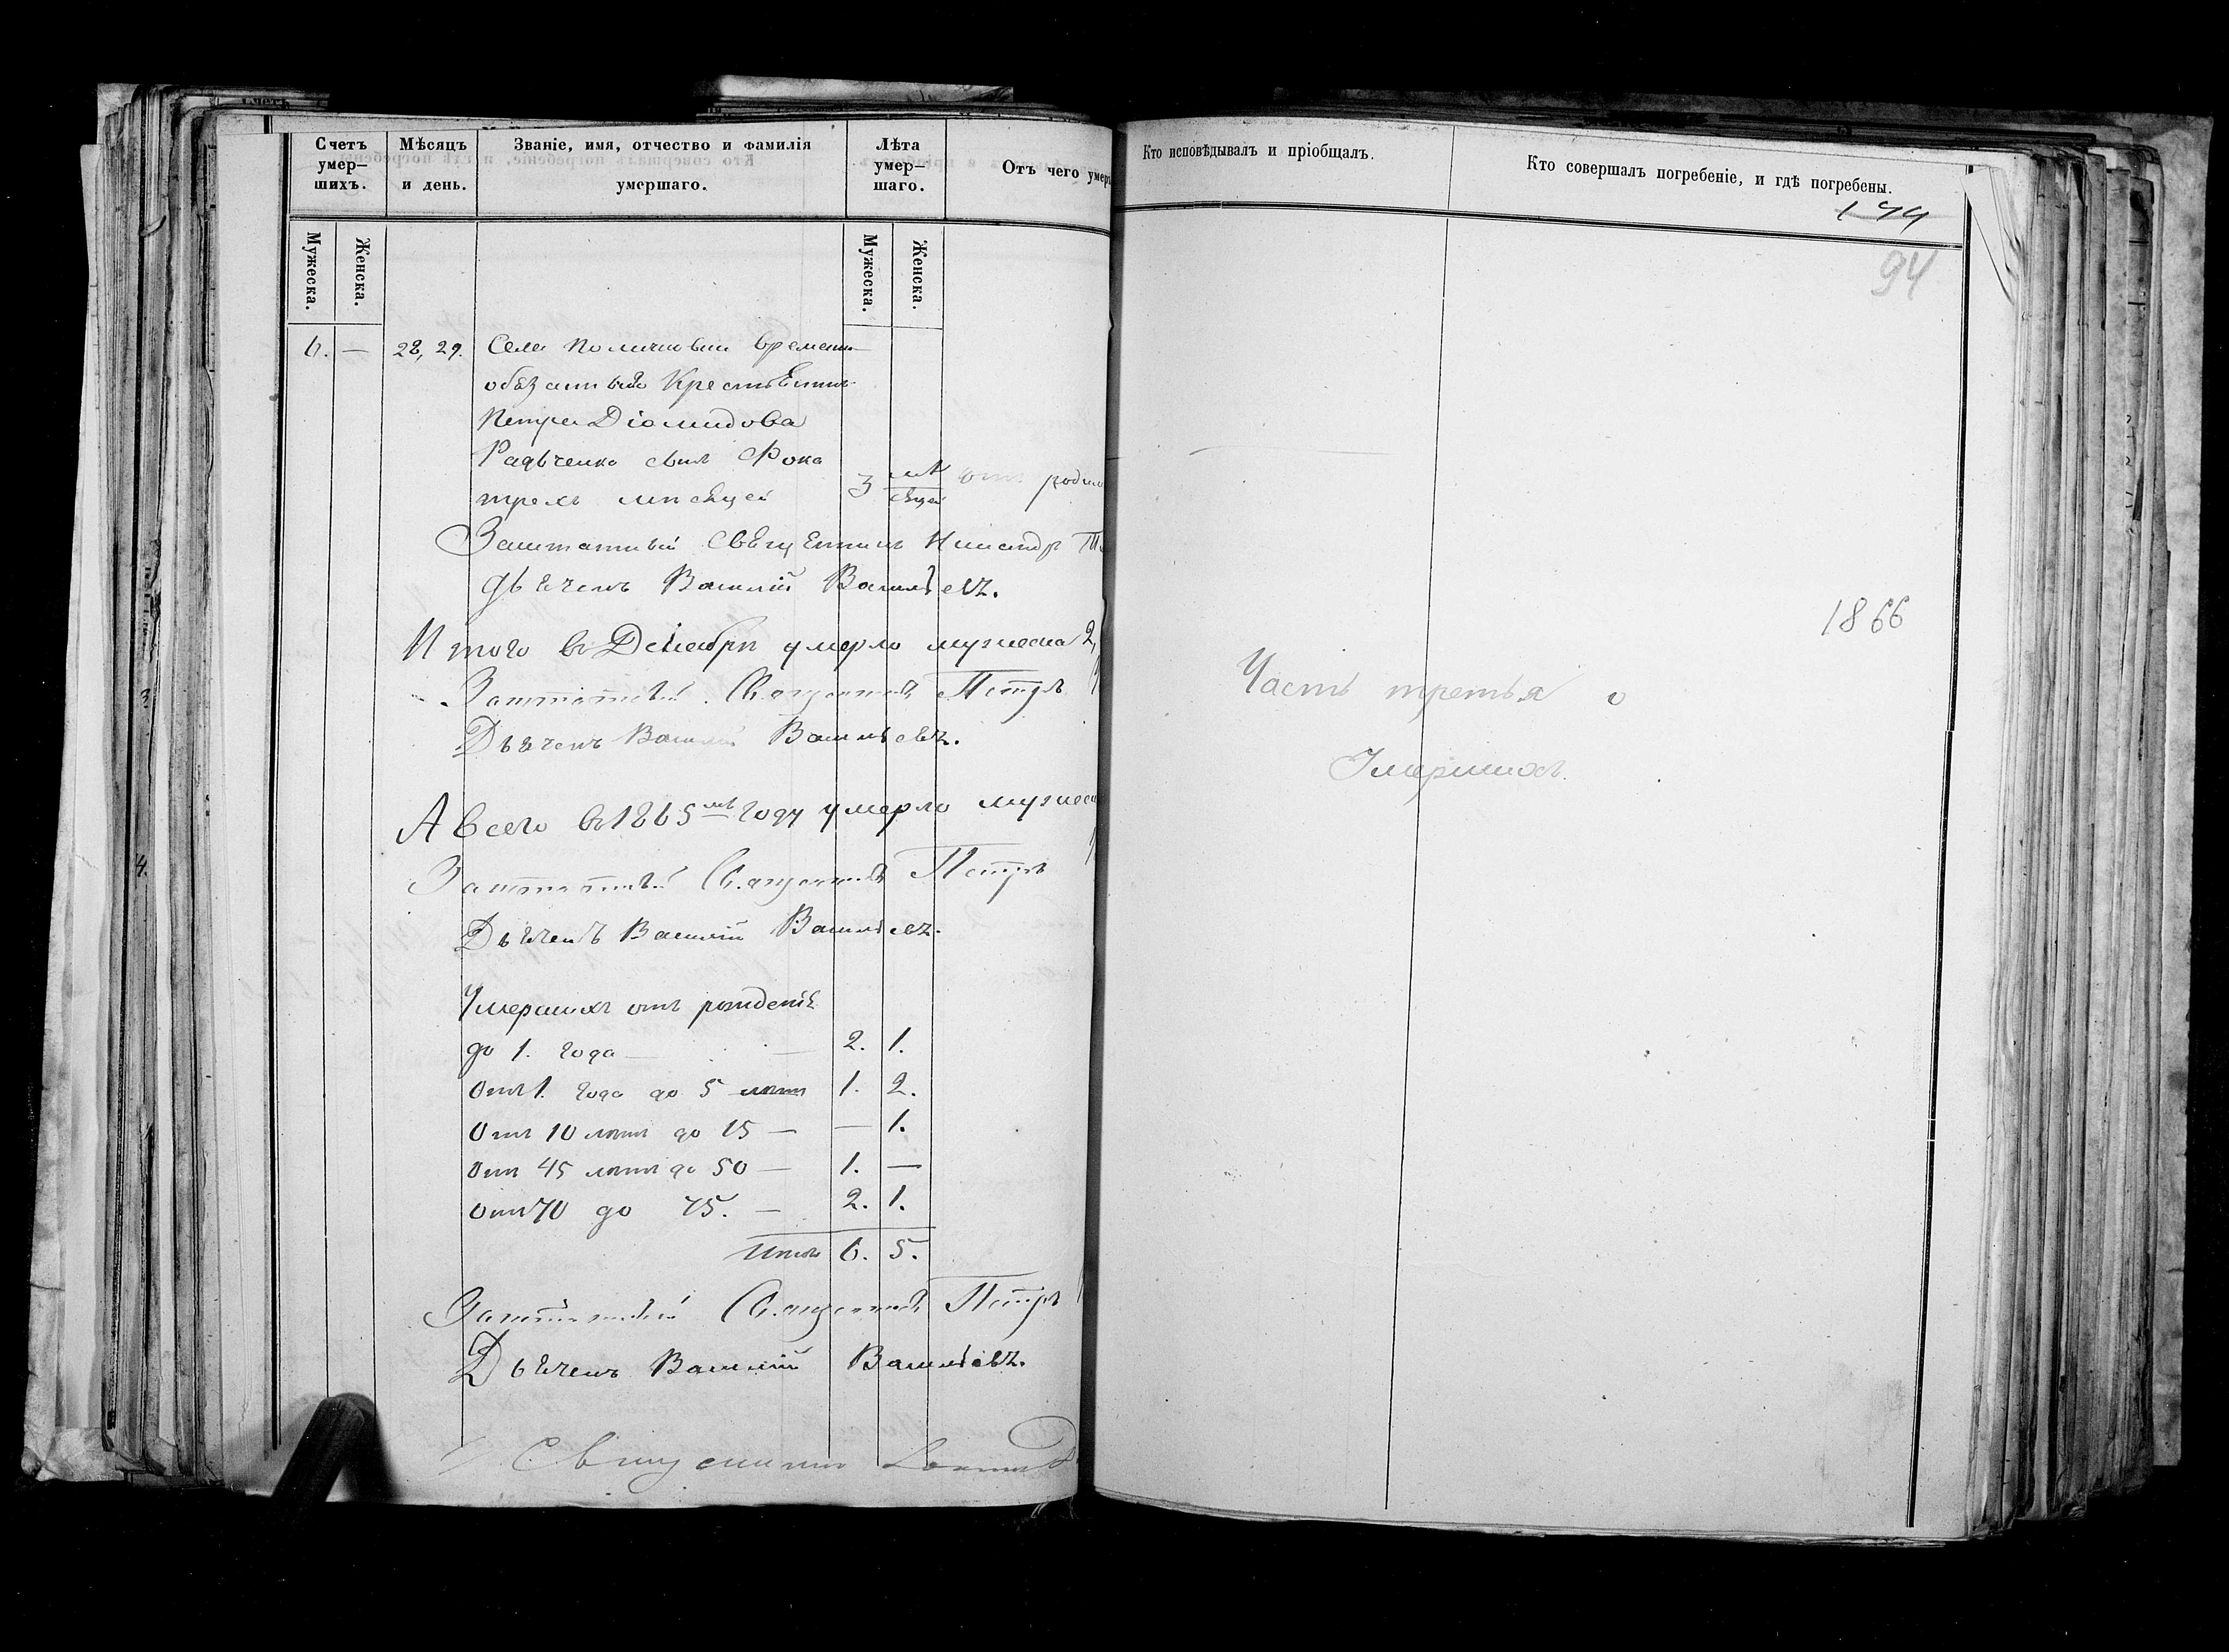 Счетъ умер-шихъ.
Мѣсяцъ и день.
Званіе, имя, отчество и фамилія умершаго.
Лѣта умер-шаго.
Отъ чего умер
Мужеска.
Женска.
Мужеска.
Женска.
6. — 28, 29. Села временно
обязаннаго Крестьянина
Петра Діомидова
Радченка сынъ Фока
трехъ мѣсяцей 3 мѣ сяцей отъ родим
Заштатный Священникъ
дьячекъ Василій Васильевъ.
Итого въ Декабрѣ умерло мужеска 2,
Заштатный Священникъ Петръ
Дьячекъ Василій Васильевъ.
А всего въ 1865мъ году умерло мужеск
Заштатный Священникъ Петръ
Дьячекъ Василій Васильевъ.
Умершихъ отъ рожденія
до 1. года — 2. 1.
Отъ 1. года до 5 лѣтъ 1. 2.
Отъ 10 лѣтъ до 15 — — 1.
Отъ 45 лѣтъ до 50 — 1. —
Отъ 70 до 75. — 2. 1.
Итого 6. 5.
Заштатный Священникъ Петръ
Дьячекъ Василій Васильевъ.
Священникъ
Кто исповѣдывалъ и пріобщалъ.
Кто совершалъ погребеніе, и гдѣ погребены.
94
1866
Часть третья о
Умершихъ.